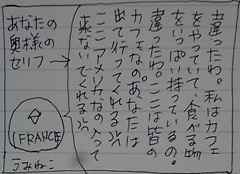 違ったわ。私はカフェ
をやっていて、食べる物
をいっぱい持っているの。
違ったわ。ここは皆の
カフェなの。あなたは
出て行ってくれる!?
ここアメリカなの入って
来ないでくれる!?
あなたの
奥様の
セリフ→
FRANCE